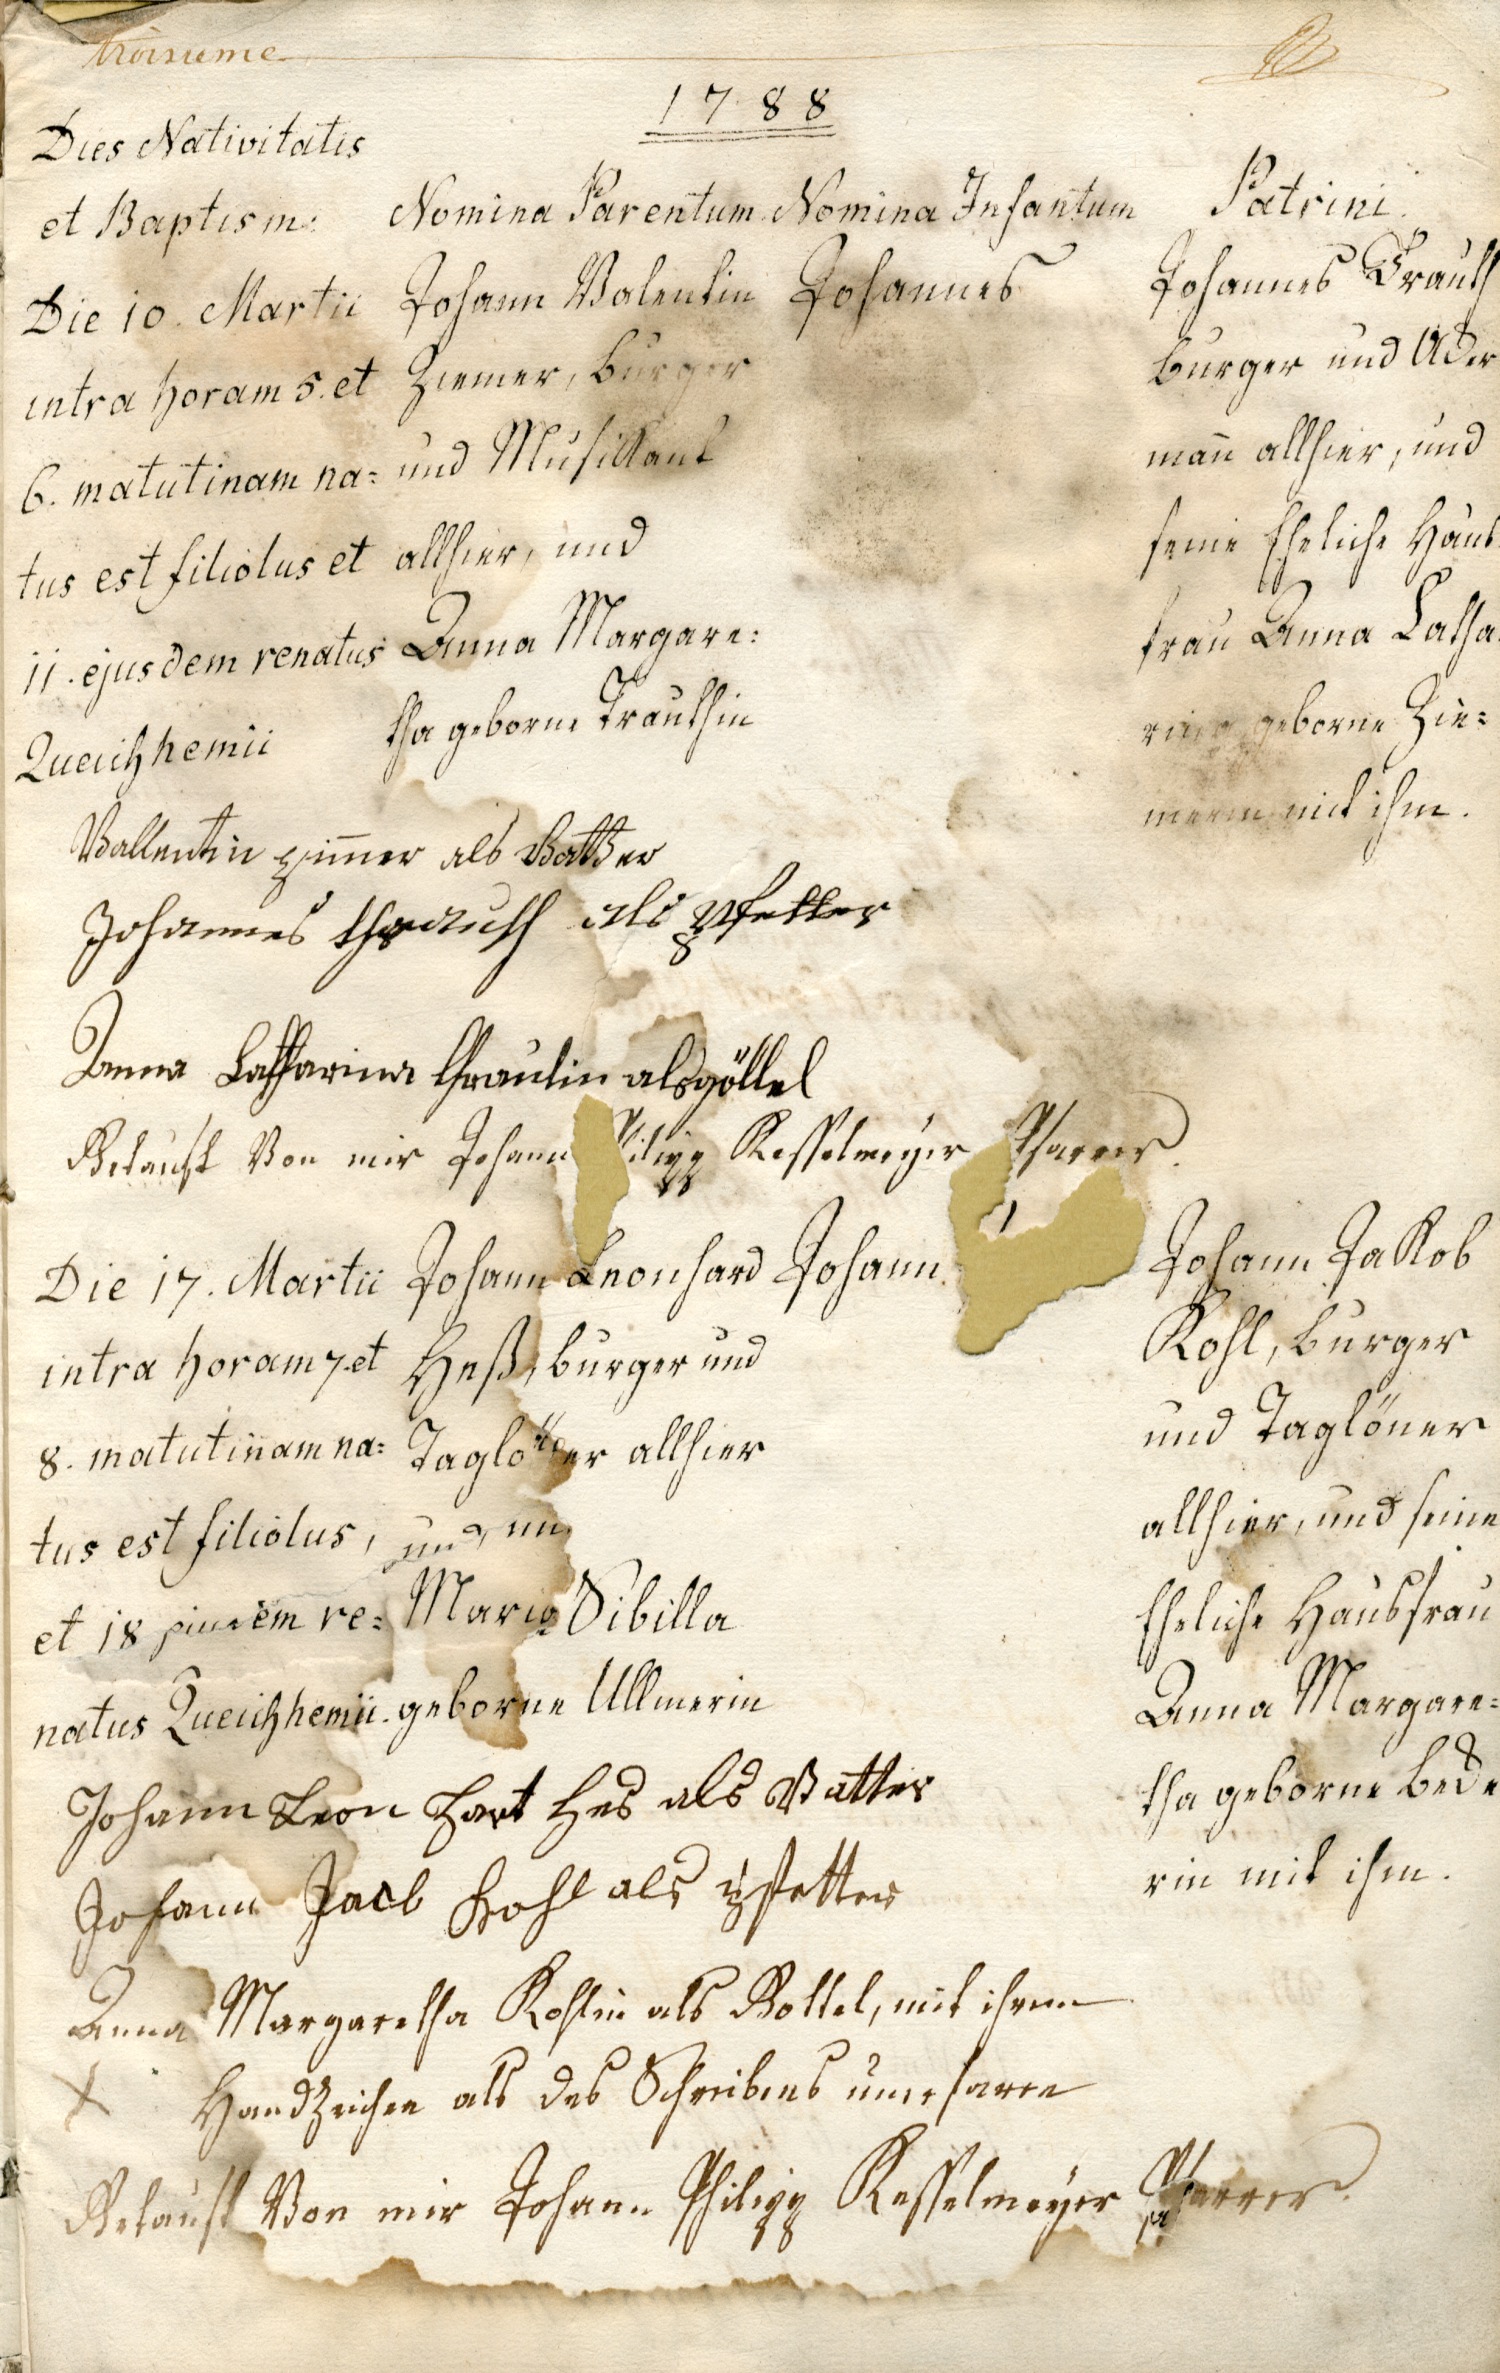 troisieme
1788
Dies Nativitatis
et Baptism: Nomina Parentum Nomina Infantum Patrini.
Die 10. Martii
intra horam 5. et
6. matutinam na=
tus est filiolus et
11. ejusdem renatus
Queichhemii
Johann Valentin
Ziemer, burger
und Musikant
allhier, und
Anna Margare:
tha geborne Trauthin
Johannes
Johannes Trauth
burger und Acker
man̄ allhier, und
seine Eheliche Haus
frau Anna Catha
rina geborne Zie=
merin mit ihm.
Vallentin zim̄er als Vatter
Johannes thrauth als pfetter
Anna Catharina thrautin als göttel
Getauft Von mir Johann Philipp Kesselmeyer Pfarrer.
Die 17. Martii
intra horam 7. et
8. matutinam na=
tus est filiolus,
et 18 em re=
natus Queichhemii.
Johann Leonhard
Heß, burger und
Taglöner allhier
und
Maria Sibilla
geborne Ullmerin
Johann
Johann Jakob
Kohl, burger
und Taglöner
allhier, und seine
Eheliche Hausfrau
Anna Margare=
tha geborne Bede
rin mit ihm.
Johann Leon hart Hes als Vatter
Johann Jacb Kohl als pfetter
Anna Margaretha Kohlin als Gottel, mit ihrem
x Handzeichen als des Schreibens unerfaren
Getauft Von mir Johann Philipp Kesselmeyer Pfarrer.